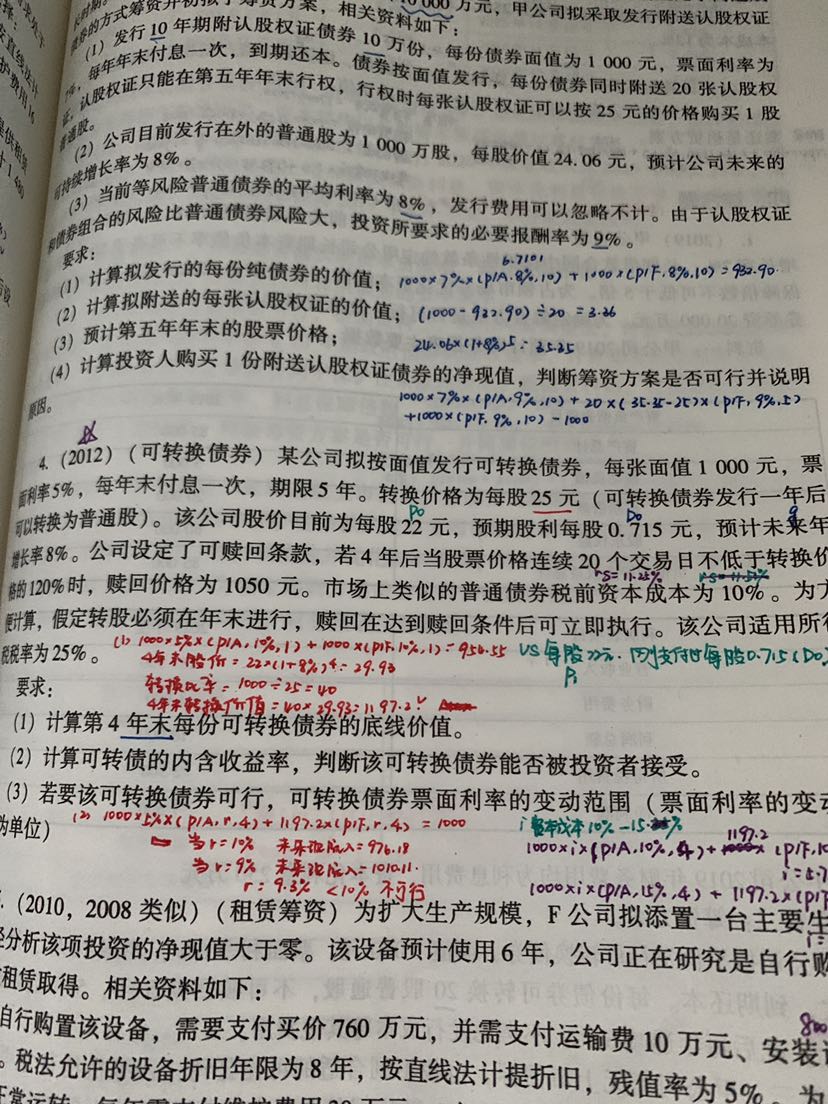 债券的方式筹资并初拟了筹资方案，相关资料如下：
000 万元，甲公司拟采取发行附送认股权证
(1) 发行 10 年期附认股权证债券 10 万份，每份债券面值为 1 000 元，票面利率为
7%，每年年末付息一次，到期还本。债券按面值发行，每份债券同时附送 20 张认股权
证，认股权证只能在第五年年末行权，行权时每张认股权证可以按 25 元的价格购买 1 股
普通股。
(2) 公司目前发行在外的普通股为 1 000 万股，每股价值 24.06 元，预计公司未来的
可持续增长率为 8%。
(3) 当前等风险普通债券的平均利率为 8%，发行费用可以忽略不计。由于认股权证
和债券组合的风险比普通债券风险大，投资所要求的必要报酬率为 9%。
要求：
6.7101
(1) 计算拟发行的每份纯债券的价值；
1000×7%×(P/A.8%,10) + 1000×(P/F.8%,10) = 932.90
(2) 计算拟附送的每张认股权证的价值；
(1000-932.90)÷20=3.36
(3) 预计第五年年末的股票价格；
24.06×(1+8%)5=35.35
(4) 计算投资人购买 1 份附送认股权证债券的净现值，判断筹资方案是否可行并说明
原因。
1000×7%×(P/A.9%,10) + 20×(35.35-25)×(P/F,9%,5)
+1000×(P/F.9%,10)-1000
4. (2012)（可转换债券）某公司拟按面值发行可转换债券，每张面值 1 000 元，票
面利率5%，每年年末付息一次，期限 5 年。转换价格为每股 25 元（可转换债券发行一年后
P0 D0 g
可以转换为普通股）。该公司股价目前为每股 22 元，预期股利每股 0.715 元，预计未来年
增长率8%。公司设定了可赎回条款，若 4 年后当股票价格连续 20 个交易日不低于转换价
rs=11.25%
格的 120% 时，赎回价格为 1050 元。市场上类似的普通债券税前资本成本为 10%。为方
便计算，假定转股必须在年末进行，赎回在达到赎回条件后可立即执行。该公司适用所得
税税率为 25%。
(1) 1000×5%×(P/A,10%,1)+1000×(P/F,10%,1)=954.55
VS 每股22元.刚支付的每股0.715(D0)
4年末股价=22×(1+8%)4=29.93
P1
转换比率=1000÷25=40
要求：
4年末转换价值=40×29.93=1197.2
(1) 计算第 4 年末每份可转换债券的底线价值。
(2) 计算可转债的内含收益率，判断该可转换债券能否被投资者接受。
(3) 若要该可转换债券可行，可转换债券票面利率的变动范围（票面利率的变动
为单位）
(2) 1000×5%×(P/A,r,4)+1197.2×(P/F,r,4)=1000
当r=10% 未来现流入=976.18
当r=9% 未来现流入=1010.11
r=9.3% <10% 不可行
1197.2
1000×i×(P/A,10%,4)+ × (P/F,10
i=5.7
1000×i×(P/A,15%,4)+1197.2×(P/F
(2010，2008 类似)（租赁筹资）为扩大生产规模，F 公司拟添置一台主要生
经分析该项投资的净现值大于零。该设备预计使用 6 年，公司正在研究是自行购
租赁取得。相关资料如下：
自行购置该设备，需要支付买价 760 万元，并需支付运输费 10 万元、安装
800
税法允许的设备折旧年限为 8 年，按直线法计提折旧，残值率为 5%。为